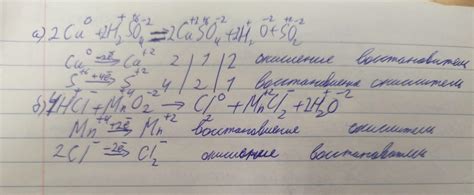 а) 2Cu⁰ + 2H₂⁺S⁺⁶O₄⁻² = 2Cu⁺²S⁺⁶O₄⁻² + 2H₂⁺O⁻² + S⁺⁴O₂⁻²
Cu⁰ -2e̅→ Cu⁺² | 2 | 1 | 2 окисление восстановитель
S⁺⁶ +4e̅→ 4 | 2 | 1 восстановление окислитель
б) 4HCl⁻ + Mn⁺⁴O₂⁻² → Cl₂⁰ + Mn⁺²Cl₂⁻ + 2H₂O⁻²
Mn⁺⁴ +2e̅→ Mn⁺² восстановление окислитель
2Cl⁻ -2e̅→ Cl₂⁻ окисление восстановитель